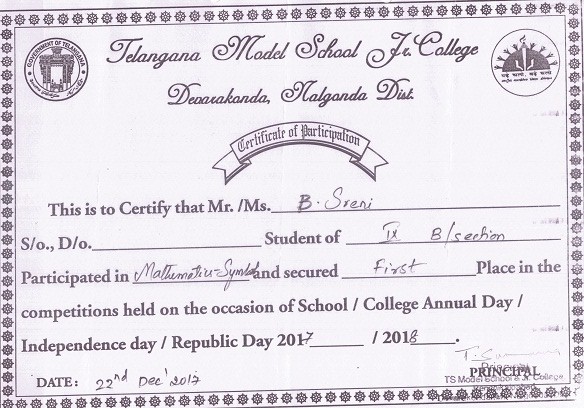 Telangana Model School Jr. College
Devarakonda, Nalgonda Dist.
GOVERNMENT OF TELANGANA
Certificate of Participation
This is to Certify that Mr. /Ms. B. Sreni
S/o., D/o. Student of IX B/section
Participated in Mathematics-Symbol and secured First Place in the
competitions held on the occasion of School / College Annual Day /
Independence day / Republic Day 2017 / 2018.
DATE: 22nd Dec'2017
PRINCIPAL
Principal
TS Model School & Jr. College